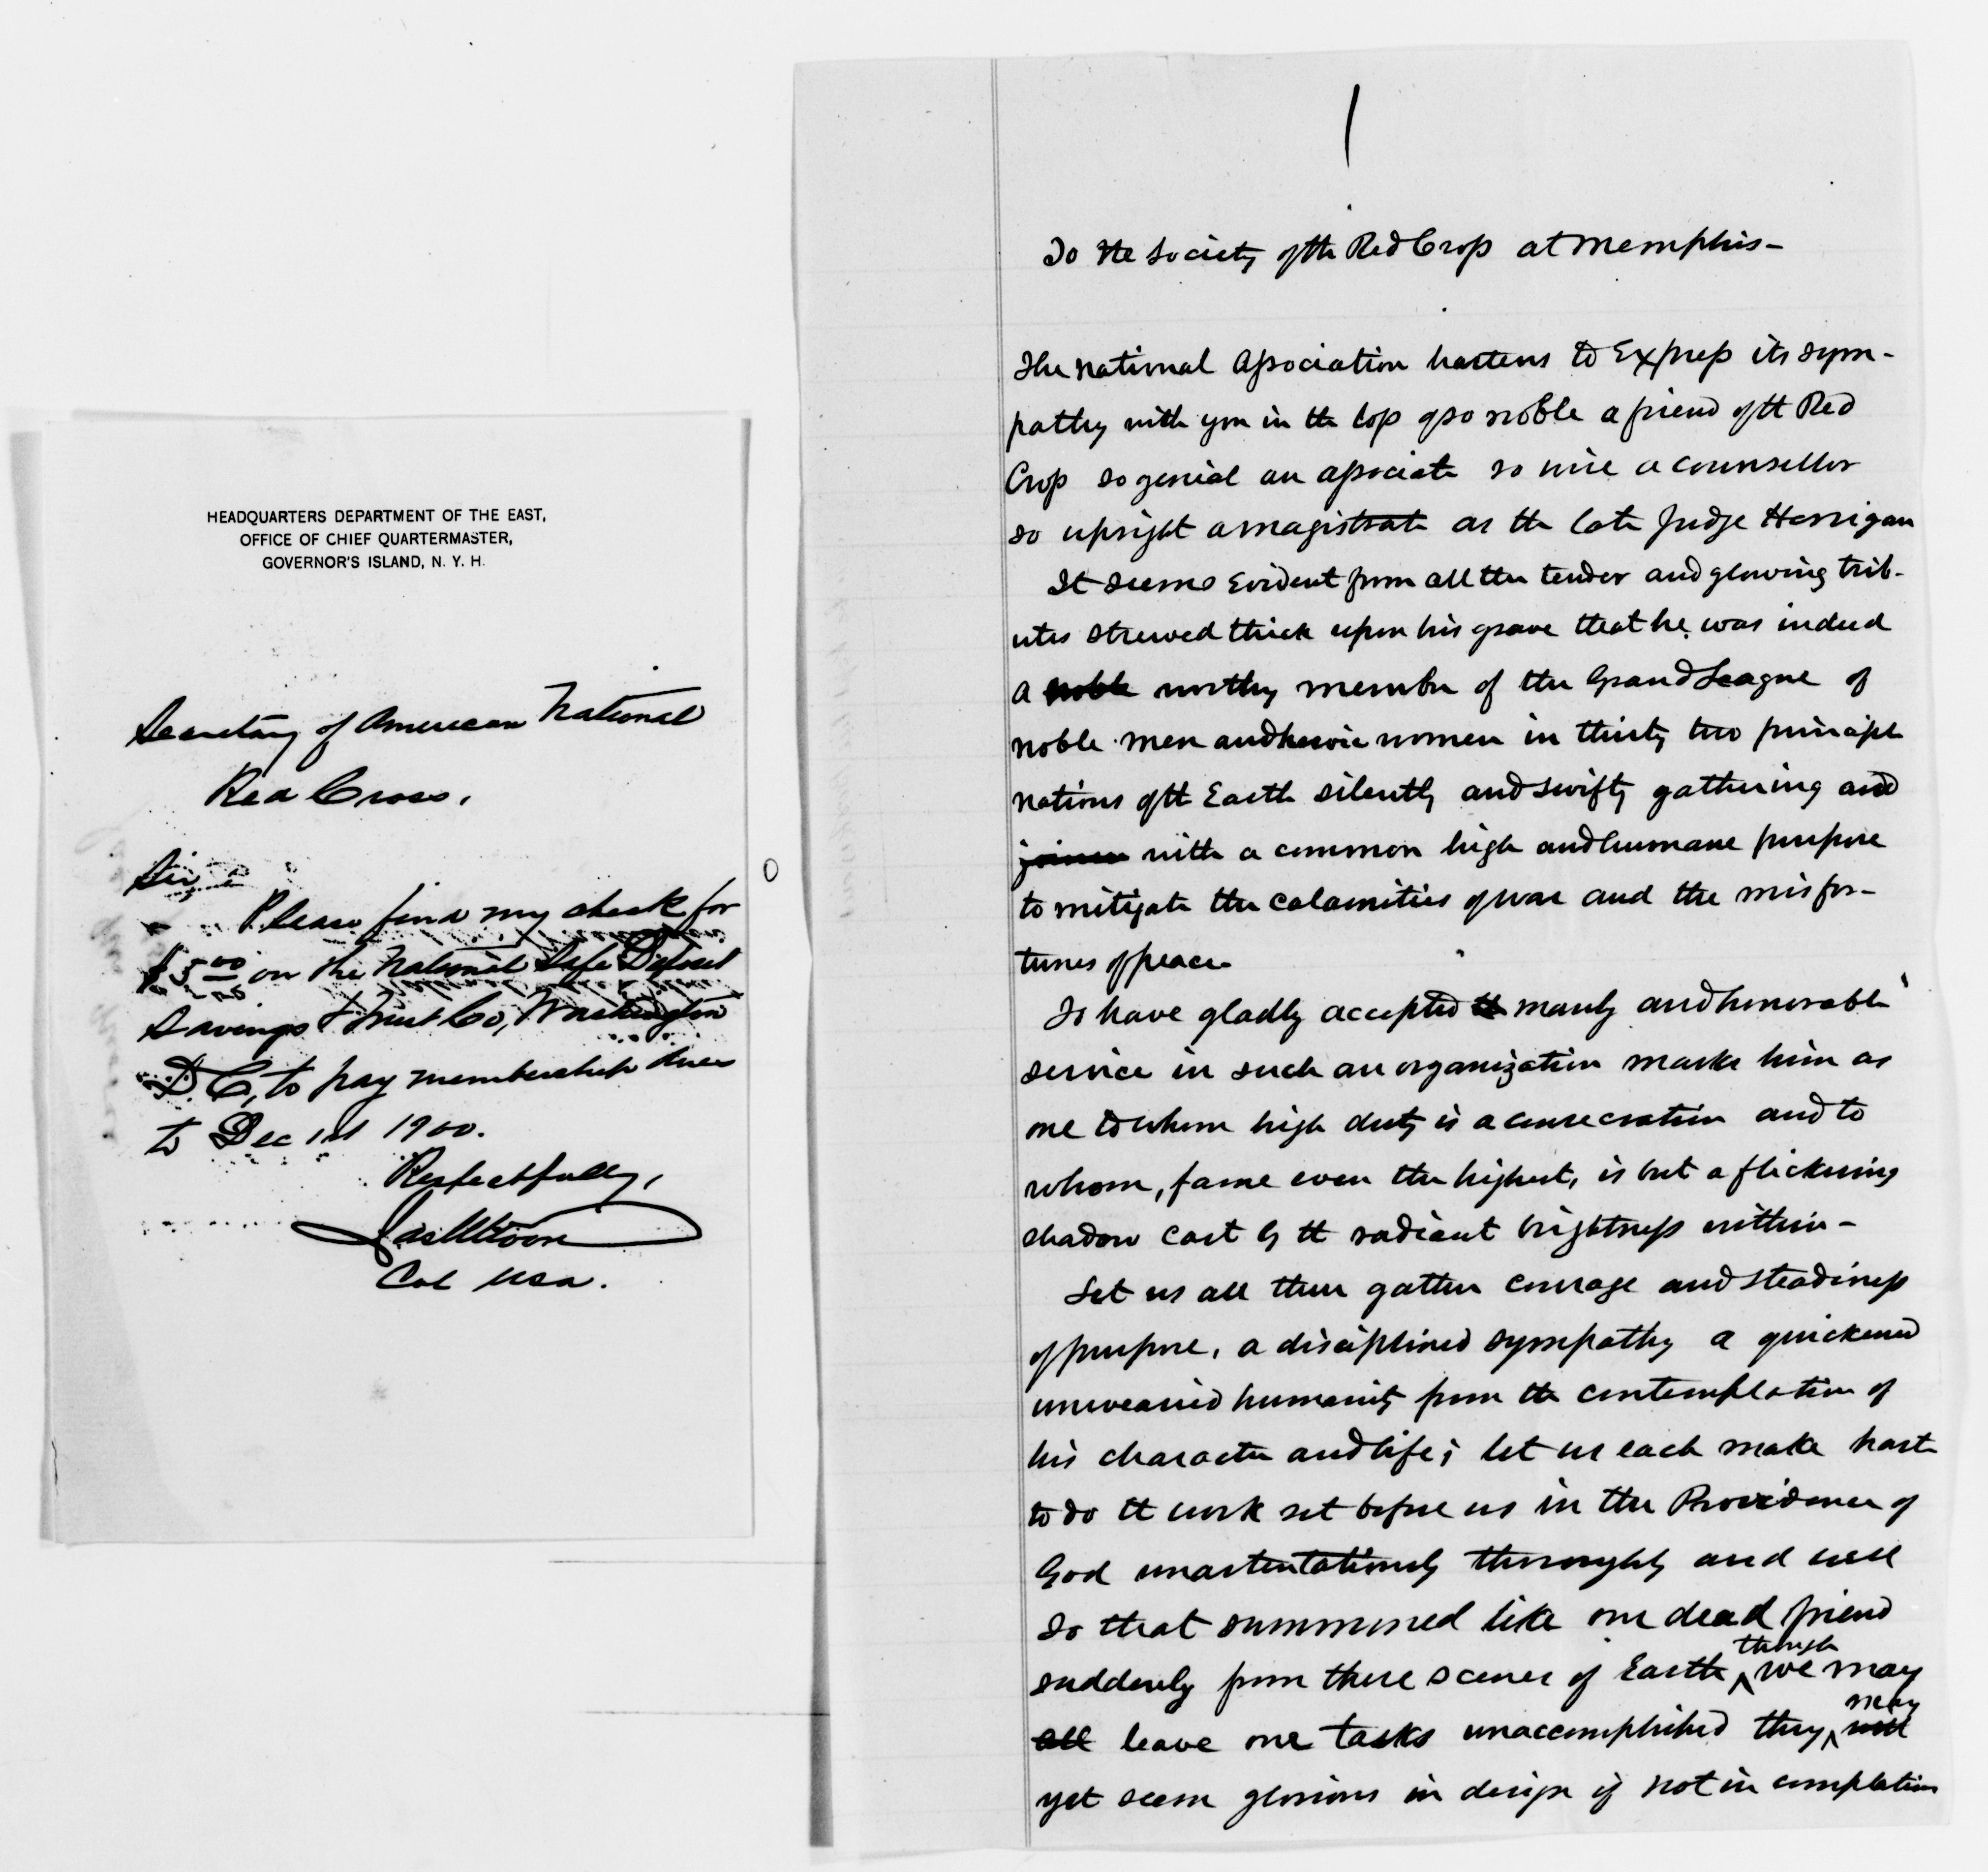 HEADQUARTERS DEPARTMENT OF THE EAST,
OFFICE OF CHIEF QUARTERMASTER,
GOVERNOR'S ISLAND, N. Y. H.
Secretary of American National
Red Cross.
Sir
Please find my check for
$5.00 on the National Safe Deposit
Savings & Trust Co, Washington
D.C, to pay membership dues
to Dec 1st 1900.
Respectfully,
Jas M Moore
Col USA.
To the Society of the Red Cross at Memphis—
The National Association hastens to Express its sym-
pathy with you in the loss of so noble a friend of the Red
Cross so genial an associate so wise a counsellor
so upright a magistrate as the late Judge Horrigan
It seems Evident from all the tender and glowing trib-
utes strewed thick upon his grave that he was indeed
a noble worthy member of the Grand League of
noble men and heroic women in thirty two principle
nations of the Earth silently and swiftly gathering and
joined with a common high and humane purpose
to mitigate the calamities of war and the misfor-
tunes of peace
To have gladly accepted the manly and honorable
service in such an organization marks him as
one to whom high duty is a consecration and to
whom, fame even the highest, is but a flickering
shadow cast by the radiant brightness within—
Let us all then gather courage and steadiness
of purpose, a disciplined sympathy a quickened
unwearied humanity from the contemplation of
his character and life; let us each make haste
to do the work set before us in the Providence of
God unostentatiously thoroughly and well
So that summoned like our dead friend
suddenly from these scenes of Earth though we may
all leave our tasks unaccomplished they may will
yet seem glorious in design if not in completion